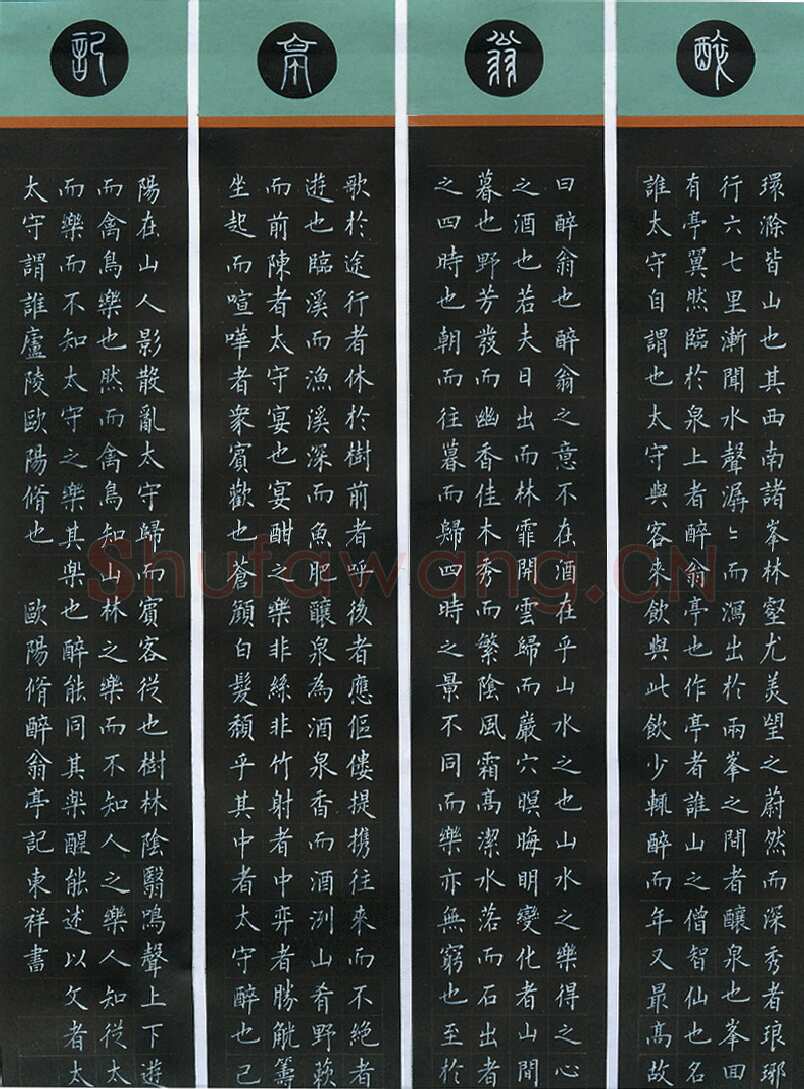 醉翁亭記
環滁皆山也其西南諸峯林壑尤美望之蔚然而深秀者琅琊
行六七里漸聞水聲潺〻而瀉出於兩峯之間者釀泉也峯囬
有亭翼然臨於泉上者醉翁亭也作亭者誰山之僧智仙也名
誰太守自謂也太守與客來飲與此飲少輒醉而年又最高故
曰醉翁也醉翁之意不在酒在乎山水之也山水之樂得之心
之酒也若夫日出而林霏開雲歸而巖穴暝晦明變化者山間
暮也野芳發而幽香佳木秀而繁陰風霜高潔水落而石出者
之四時也朝而往暮而歸四時之景不同而樂亦無窮也至於
歌於途行者休於樹前者呼後者應傴僂提攜往來而不絕者
遊也臨溪而漁溪深而魚肥釀泉為酒泉香而酒洌山肴野蔌
而前陳者太守宴也宴酣之樂非絲非竹射者中弈者勝觥籌
坐起而喧嘩者衆賓歡也蒼顏白髮頹乎其中者太守醉也已
陽在山人影散亂太守歸而賓客從也樹林陰翳鳴聲上下遊
而禽鳥樂也然而禽鳥知山林之樂而不知人之樂人知從太
而樂而不知太守之樂其樂也醉能同其樂醒能述以文者太
太守謂誰廬陵歐陽脩也 歐陽脩醉翁亭記東祥書
Shufawang.CN